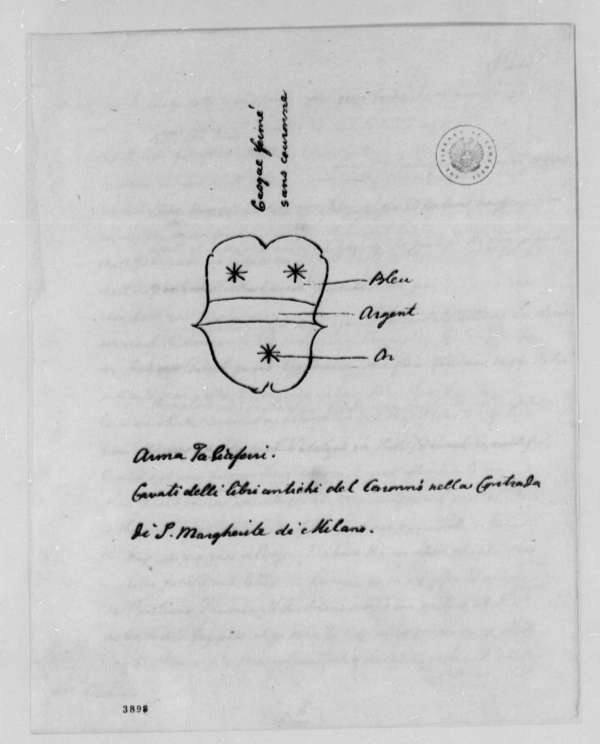 Casque fermé
sans couronne
Bleu
Argent
Or
Arma Tagliaferri.
Cavati delli libri antichi del Coronno nella Contrada
di S. Margherita di Milano.
3898